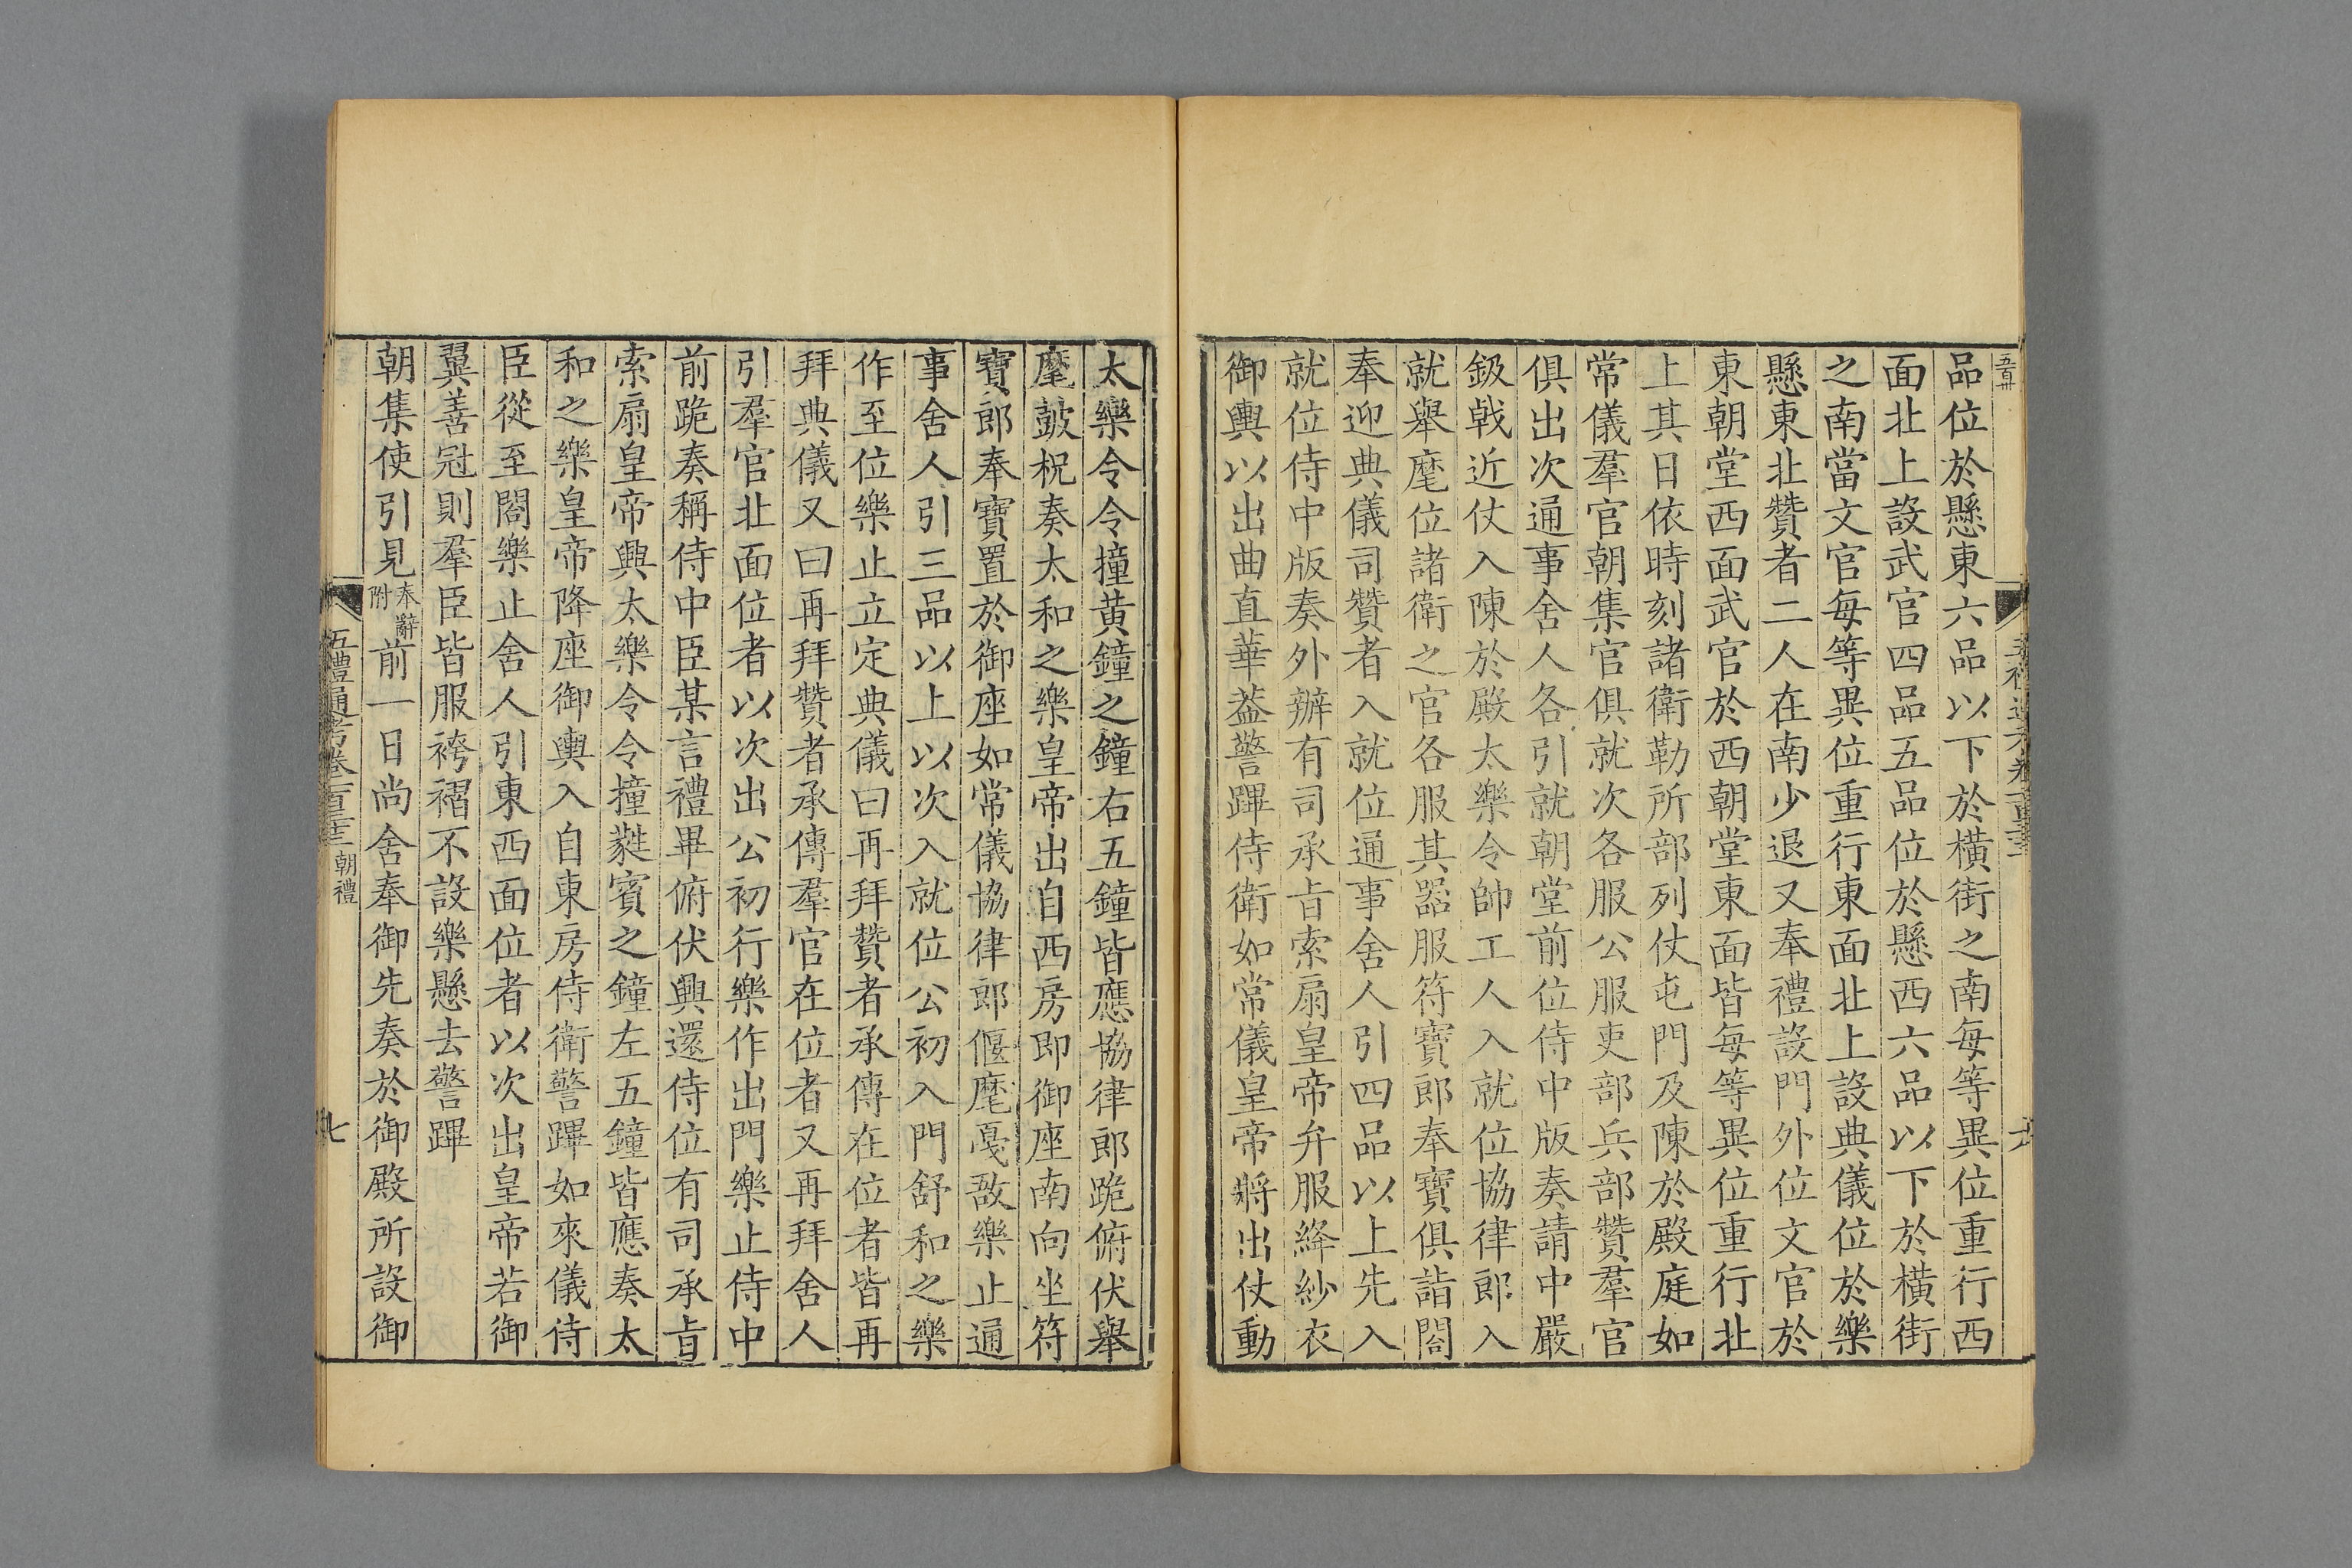 品位於懸東六品以下於橫街之南每等異位重行西
面北上設武官四品五品位於懸西六品以下於橫街
之南當文官每等異位重行東面北上設典儀位於樂
懸東北贊者二人在南少退又奉禮設門外位文官於
東朝堂西面武官於西朝堂東面皆每等異位重行北
上其日依時刻諸衛勒所部列仗屯門及陳於殿庭如
常儀羣官朝集官俱就次各服公服吏部兵部贊羣官
俱出次通事舍人各引就朝堂前位侍中版奏請中嚴
鈒戟近仗入陳於殿太樂令帥工人入就位協律郎入
就舉麾位諸衛之官各服其器服符寶郎奉寶俱詣閤
奉迎典儀司贊者入就位通事舍人引四品以上先入
就位侍中版奏外辦有司承旨索扇皇帝弁服絳紗衣
御輿以出曲直華葢警蹕侍衛如常儀皇帝將出仗動
太樂令令撞黃鐘之鐘右五鐘皆應協律郎跪俯伏舉
麾鼓柷奏太和之樂皇帝出自西房即御座南向坐符
寶郎奉寶置於御座如常儀協律郎偃麾戞敔樂止通
事舍人引三品以上以次入就位公初入門舒和之樂
作至位樂止立定典儀曰再拜贊者承傳在位者皆再
拜典儀又曰再拜贊者承傳羣官在位者又再拜舍人
引羣官北面位者以次出公初行樂作出門樂止侍中
前跪奏稱侍中臣某言禮畢俯伏興還侍位有司承旨
索扇皇帝興太樂令令撞蕤賓之鐘左五鐘皆應奏太
和之樂皇帝降座御輿入自東房侍衛警蹕如來儀侍
臣從至閤樂止舍人引東西面位者以次出皇帝若御
翼善冠則羣臣皆服袴褶不設樂懸去警蹕
朝集使引見奉辭附前一日尚舍奉御先奏於御殿所設御
五禮通考卷一百三十二 朝禮
七